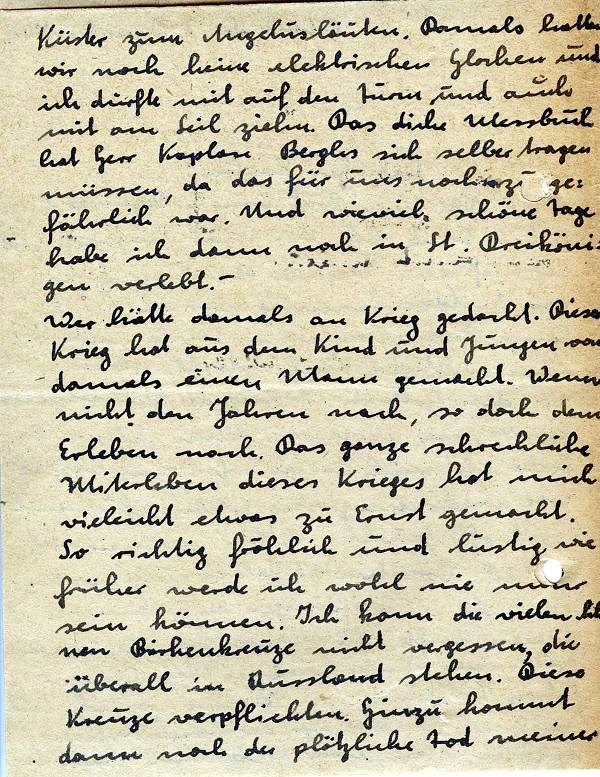 Küster zum Angelusläuten. Damals hatten
wir noch keine elektrischen Glocken und
ich durfte mit auf den Turm und auch
mit am Seil ziehn. Das dicke Messbuch
hat Herr Kaplan sich selber tragen
müssen, da das für uns noch zu ge=
fährlich war. Und wieviel schöne Tage
habe ich dann noch in St. Dreiköni=
gen verlebt.-
Wer hätte damals an Krieg gedacht. Dieser
Krieg hat aus dem Kind und Jungen von
damals einen Mann gemacht. Wenn
nicht den Jahren nach, so doch dem
Erleben nach. Das ganze schreckliche
Miterleben dieses Krieges hat mich
vieleicht etwas zu Ernst gemacht.
So richtig fröhlich und lustig wie
früher werde ich wohl nie mehr
sein können. Ich kann die vielen
nen Birkenkreuze nicht vergessen, die
überall in Russland stehen. Diese
Kreuze verpflichten. Hinzu kommt
dann noch der plötzliche Tod meiner